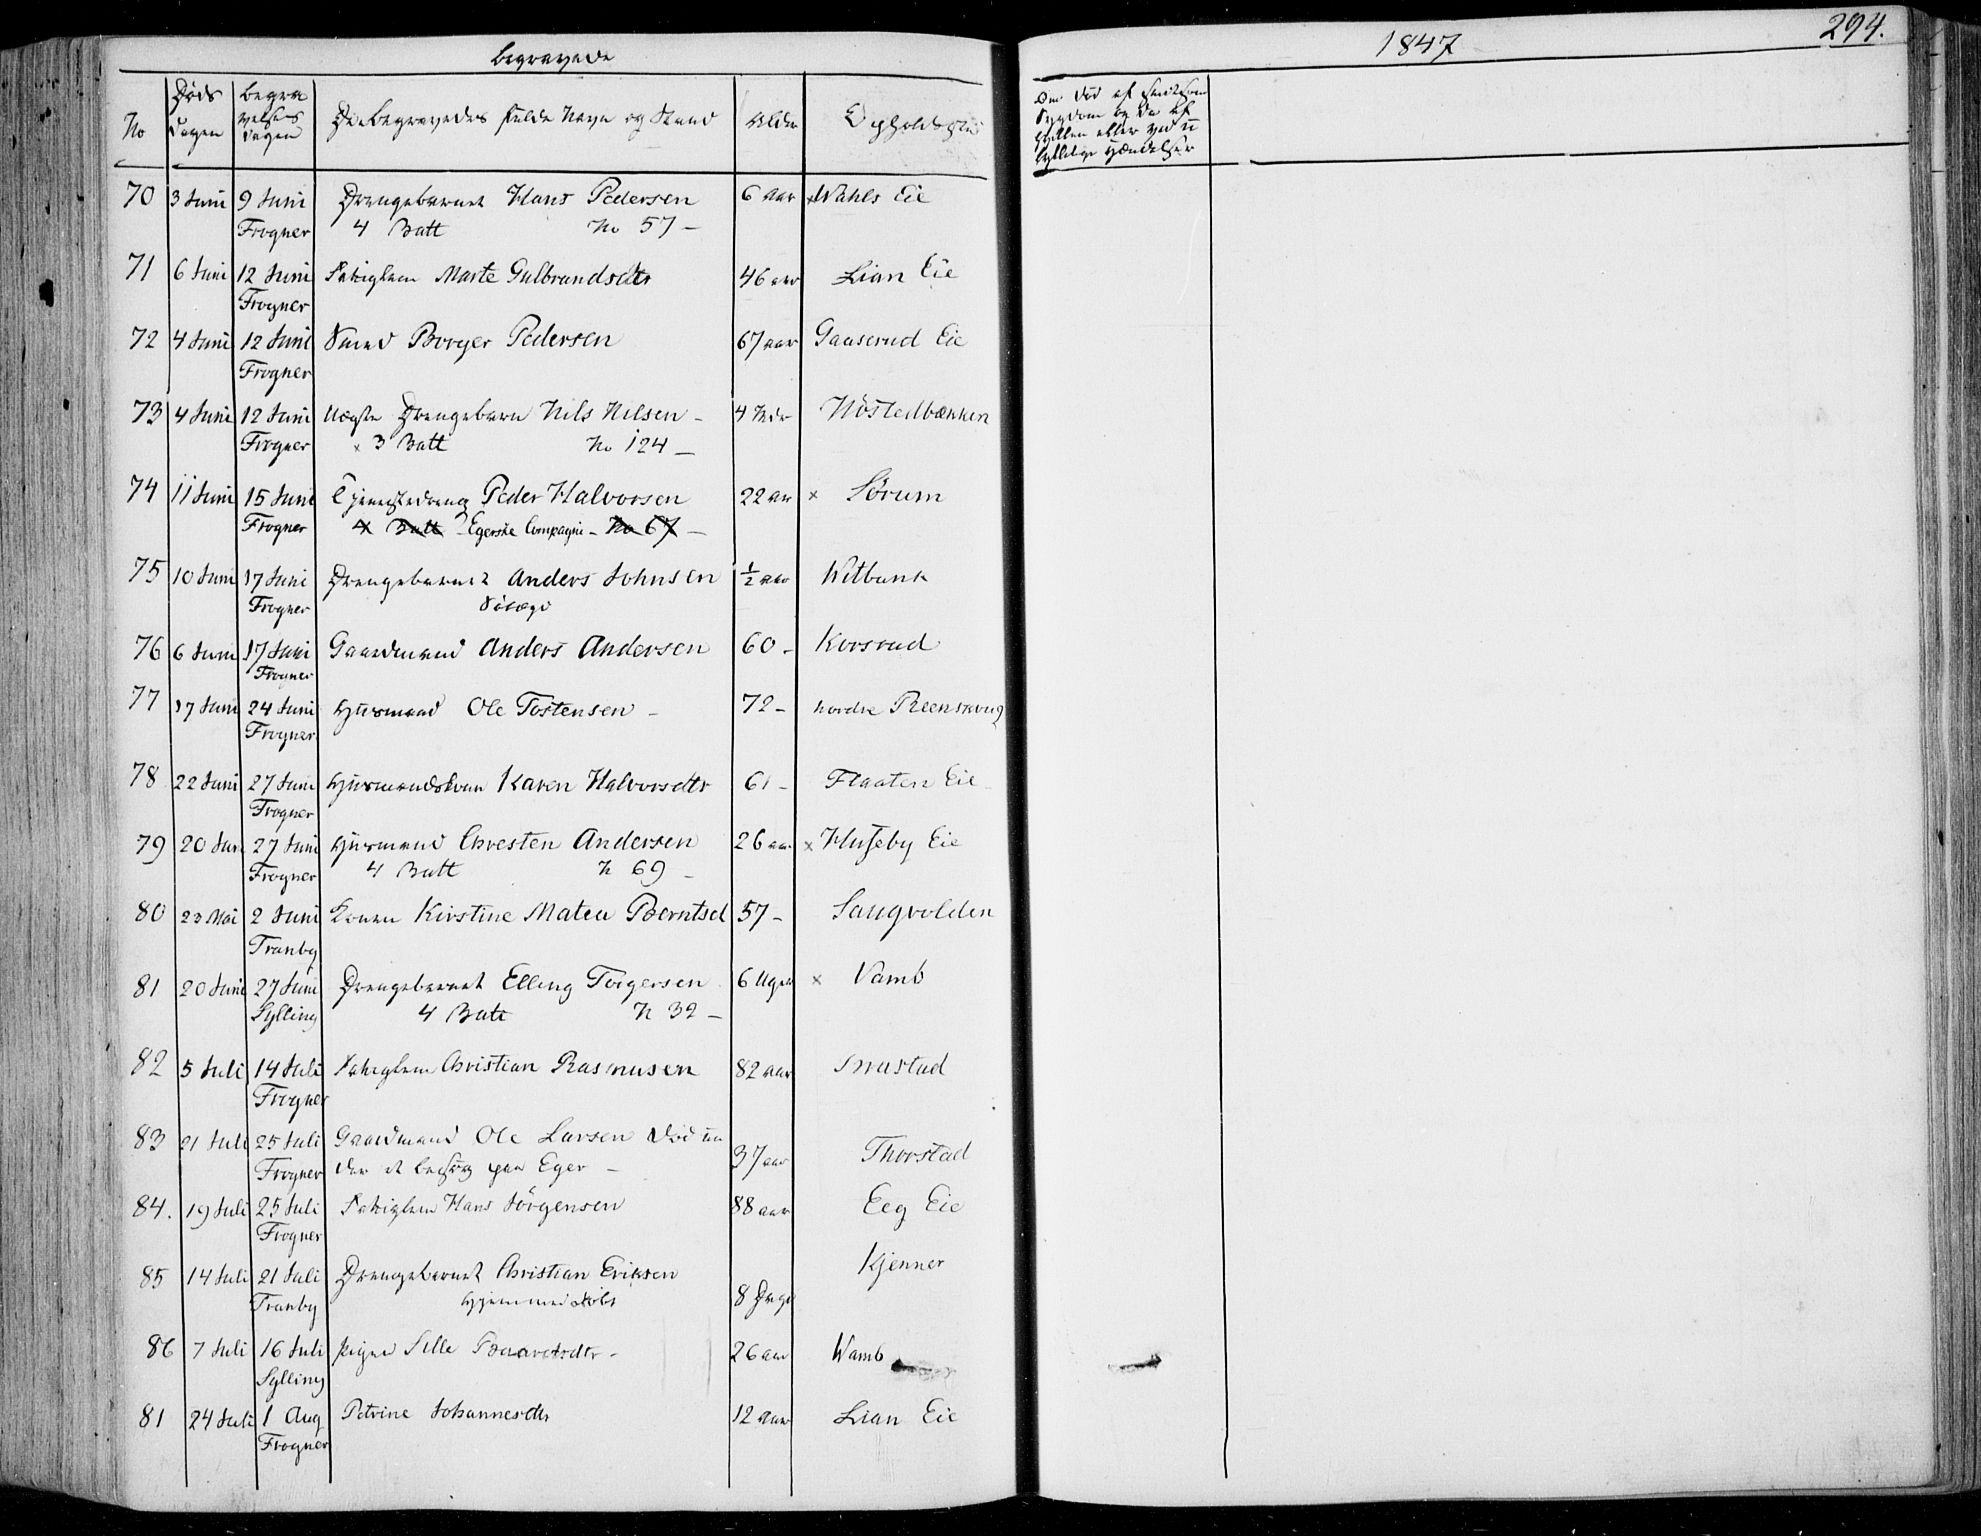 Begravede
1847
294.
No
Døds Dagen
Begravelses Dagen
De Begravedes fulde Navn og Stand
Alder
Opholdssted
Om død af smitsom
Sygdom og da af
hvilken eller ved u
lykkelige Hændelser
70 3 Juni 9 Juni Drengebarnet Hans Pedersen 6 aar × Wahls Eie
Frogner 4 Batt No 57 -
71 6 Juni 12 Juni Fatiglem Marte Gulbrandsdtr 46 aar Lian Eie
Frogner
72 4 Juni 12 Juni Smed Borger Pedersen 67 aar Gaaserud Eie
Frogner
73 4 Juni 12 Juni Uægte Drengebarn Nils Nilsen - 4 Mdr Nøstedbækken
Frogner × 3 Batt No 124 -
74 11 Juni 15 Juni Tjenestedreng Peder Halvorsen 22 aar × Sørum
Frogner 4 Batt - Egerske Compagni - No 67 -
75 10 Juni 17 Juni Drengebarnet Anders Johnsen ½ aar Witbank
Frogner
76 6 Juni 17 Juni Gaardmand Anders Andersen 60 - Korsrud
Frogner
77 17 Juni 24 Juni Huusmand Ole Tostensen - 72 - nordre Reenskoug
Frogner
78 22 Juni 27 Juni Huusmandskone Karen Halvorsdtr 61 - Flaaten Eie -
Frogner
79 20 Juni 27 Juni Huusmand Christen Andersen 26 aar × Huseby Eie
Frogner 4 Batt N 69 -
80 23 Mai 2 Juni Konen Kirstine Matea Berntsd 57 - Saugvolden
Tranby
81 20 Juni 27 Juni Drengebarnet Elling Torgersen 6 Uger × Vamb
Sylling 4 Batt N 32 -
82 5 Juli 14 Juli Fatiglem Christian Rasmusen 82 aar Brastad
Frogner
83 21 Juli 25 Juli Gaardmand Ole Larsen død un
Frogner der et besøg paa Eger - 37 aar Thorstad
84. 19 Juli 25 Juli Fatiglem Hans Jörgensen 88 aar Eeg Eie
Frogner
85 14 Juli 21 Juli Drengebarnet Christian Eriksen 8 Dage Kjenner
Tranby Hjemmedøbt
86 7 Juli 16 Juli Pigen Sille Baardsdtr - 26 aar Wamb
Sylling
81 24 Juli 1 Aug Petrine Johannesdtr 12 aar Lian Eie
Frogner